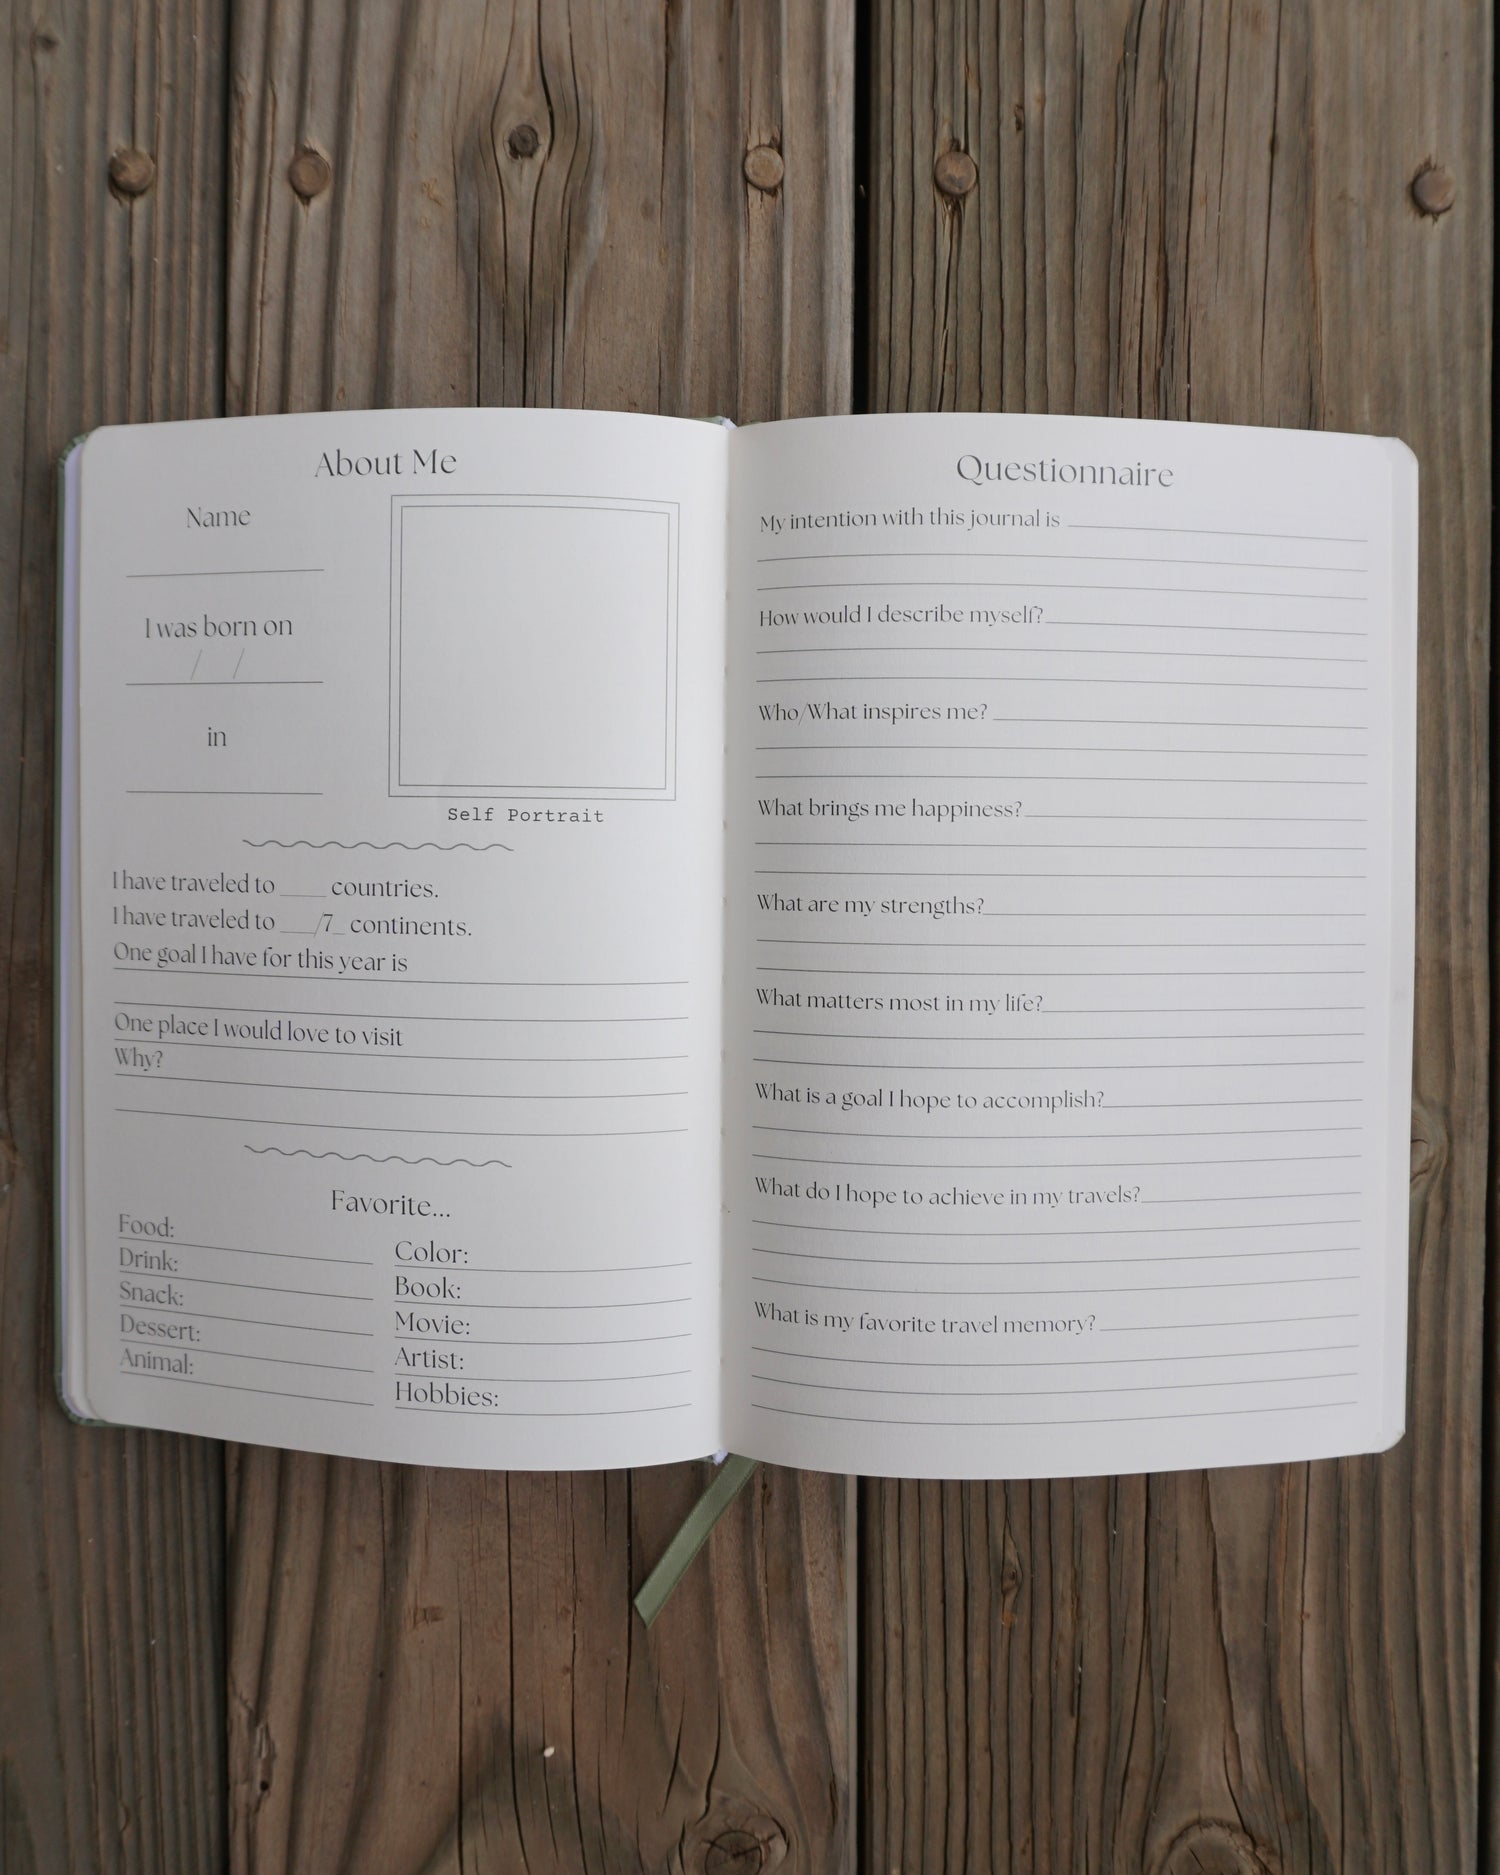 About Me
Name
I was born on
/ /
in
Self Portrait
I have traveled to ____ countries.
I have traveled to ___/7_ continents.
One goal I have for this year is
One place I would love to visit
Why?
Favorite...
Food:
Drink:
Snack:
Dessert:
Animal:
Color:
Book:
Movie:
Artist:
Hobbies:
Questionnaire
My intention with this journal is
How would I describe myself?
Who/What inspires me?
What brings me happiness?
What are my strengths?
What matters most in my life?
What is a goal I hope to accomplish?
What do I hope to achieve in my travels?
What is my favorite travel memory?